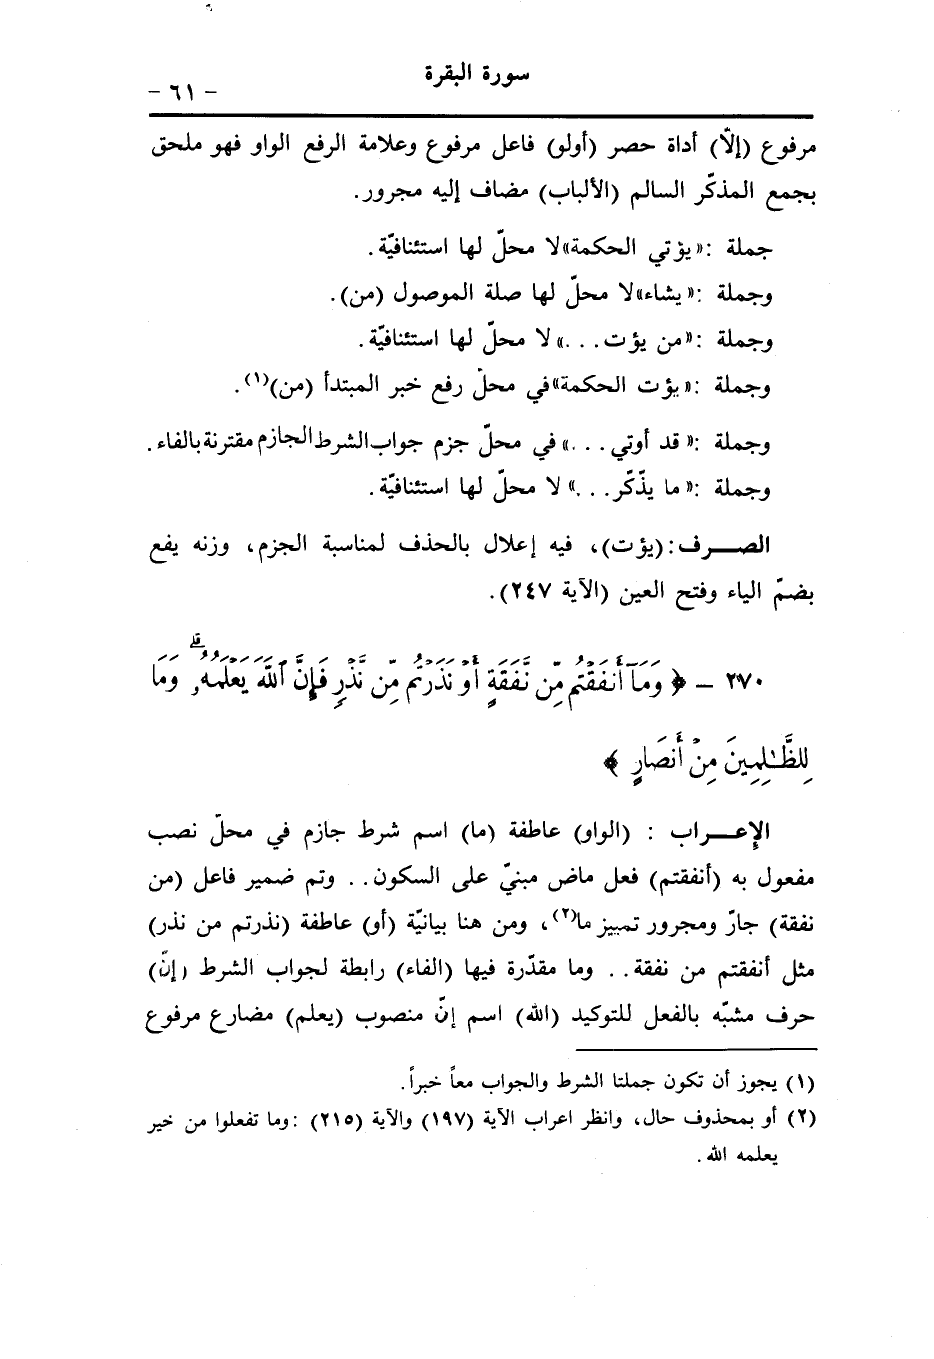 سورة البقرة
- ٦١ -
مرفوع (إلاّ) أداة حصر (أولو) فاعل مرفوع وعلامة الرفع الواو فهو ملحق
بجمع المذكّر السالم (الألباب) مضاف إليه مجرور.
جملة :«يؤتي الحكمة»لا محلّ لها استئنافيّة.
وجملة :«يشاء»لا محلّ لها صلة الموصول (من).
وجملة :«من يؤت...» لا محلّ لها استئنافيّة.
وجملة :«يؤت الحكمة»في محلّ رفع خبر المبتدأ (من)(١).
وجملة :«قد أوتي...» في محلّ جزم جواب الشرط الجازم مقترنة بالفاء.
وجملة :«ما يذّكّر...» لا محلّ لها استئنافيّة.
الصـــرف:(يؤت)، فيه إعلال بالحذف لمناسبة الجزم، وزنه يفع
بضمّ الياء وفتح العين (الآية ٢٤٧).
٢٧٠ - ﴿ وَمَآ أَنفَقْتُم مِّن نَّفَقَةٍ أَوْ نَذَرْتُم مِّن نَّذْرٍ فَإِنَّ ٱللَّهَ يَعْلَمُهُۥ ۗ وَمَا
لِلظَّـٰلِمِينَ مِنْ أَنصَارٍ ﴾
الإعـــراب : (الواو) عاطفة (ما) اسم شرط جازم في محلّ نصب
مفعول به (أنفقتم) فعل ماض مبنيّ على السكون.. وتم ضمير فاعل (من
نفقة) جارّ ومجرور تمييز ما(٢)، ومن هنا بيانيّة (أو) عاطفة (نذرتم من نذر)
مثل أنفقتم من نفقة.. وما مقدّرة فيها (الفاء) رابطة لجواب الشرط (إنّ)
حرف مشبّه بالفعل للتوكيد (الله) اسم إنّ منصوب (يعلم) مضارع مرفوع
(١) يجوز أن تكون جملتا الشرط والجواب معاً خبراً.
(٢) أو بمحذوف حال، وانظر اعراب الآية (١٩٧) والآية (٢١٥) :وما تفعلوا من خير
يعلمه الله.